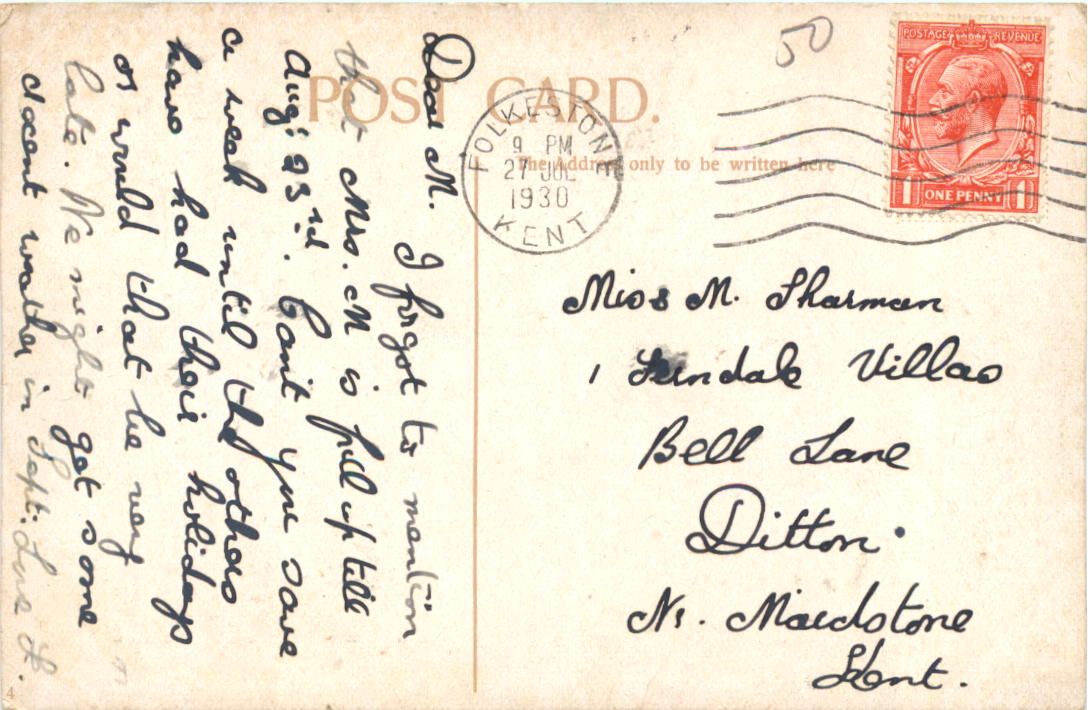 50
POSTAGE REVENUE
1 ONE PENNY 1
POST CARD.
The Address only to be written here
FOLKESTONE
9 PM
27 JUL
1930
KENT
Dear M.
I forgot to mention
that Mrs. M is full up till
Aug: 23rd. Can't you save
a week until the others
have had their holidays
or would that be very
late. We might get some
decent weather in Sept: Love
Miss M. Sharman
1 Villas
Bell Lane
Ditton
Nr. Maidstone
Kent.
4